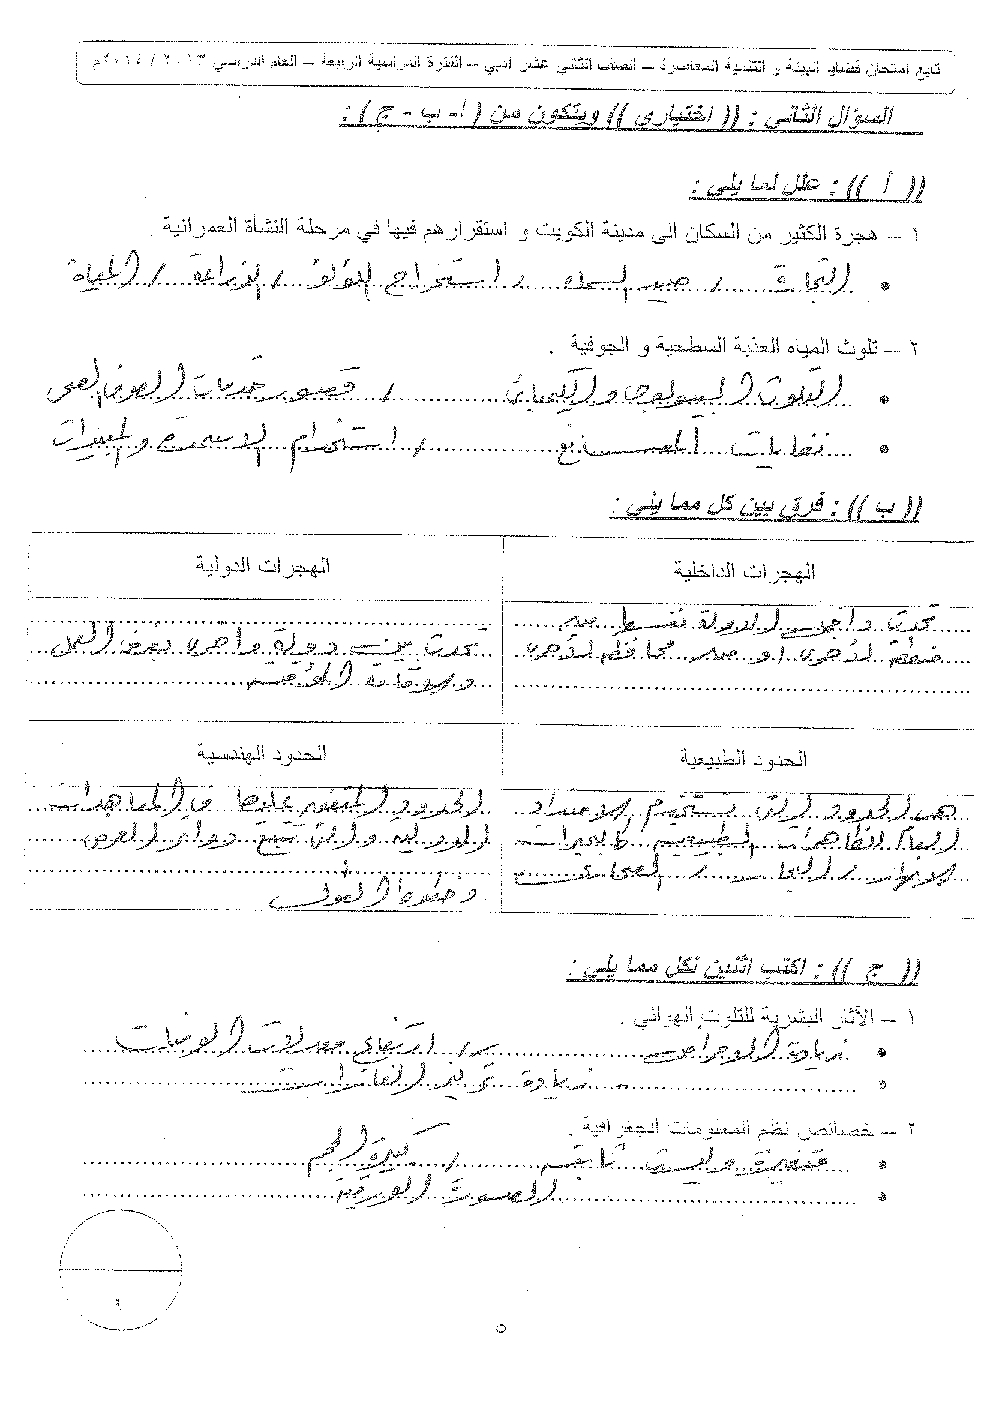 تابع امتحان قضايا البيئة و التنمية المعاصرة – الصف الثاني عشر أدبي – الفترة الدراسية الرابعة – العام الدراسي ٢٠١٣ / ٢٠١٤م
السؤال الثاني : (( اختياري )) ويتكون من ( أ - ب - ج ) :
(( أ )) : علل لما يلي :
١ – هجرة الكثير من السكان الى مدينة الكويت و استقرارهم فيها في مرحلة النشأة العمرانية .
• التجارة / صيد السمك / استخراج اللؤلؤ / الزراعة / المياه
٢ – تلوث المياه العذبة السطحية و الجوفية .
• التلوث البيولوجي والكيميائي / قصور خدمات الصرف الصحي
• نفايات المصانع / استخدام الاسمدة والمبيدات
(( ب )) : فرق بين كل مما يلي :
الهجرات الداخلية
الهجرات الدولية
تحدث داخل الدولة فقط من
منطقة لأخرى أو من محافظة لأخرى
تحدث بين دولة وأخرى بغرض العمل
الحدود الطبيعية
الحدود الهندسية
هي الحدود التي تستخدم الامتداد
العام للظاهرات الطبيعية كالبحيرات
الأنهار / الجبال /
الحدود المتفق عليها في المعاهدات
الدولية والتي تتبع دوائر العرض
وخطوط الطول
(( ج )) : اكتب اثنين لكل مما يلي :
١ – الآثار البشرية للتلوث الهوائي .
• زيادة الأمراض / ارتفاع معدلات الوفيات
• زيادة تركيز الغازات
٢ – خصائص نظم المعلومات الجغرافية .
• متغيرة وليست ثابتة / كبيرة الحجم
• الصورة الورقية
٩
٥